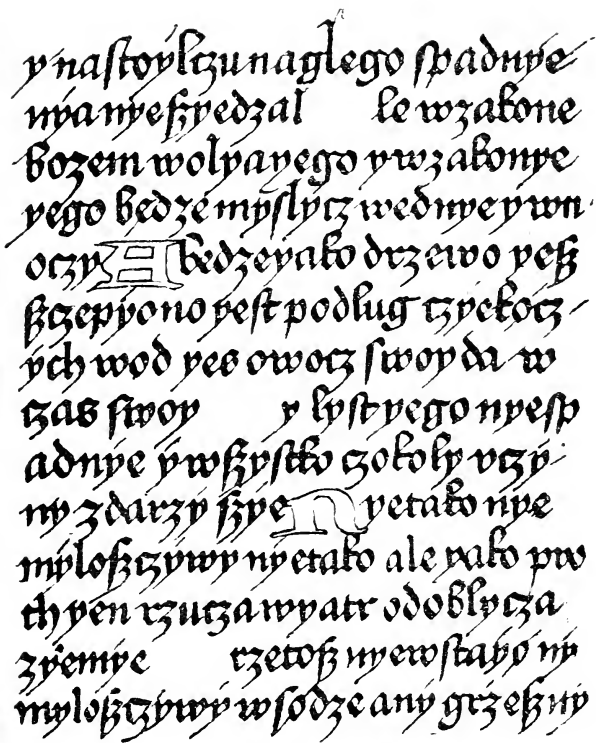 y na stoylczu naglego spadnye
nya nye szyedzal le wzakone
bozem wolya yego y wzakonye
yego bedze myslycz wednye y wn
oczy A bedze yako drzewo yesz
szczepyono yest podlug czyekocz
ych wod yes owocz swoy da w
czas swoy y lyst yego nye sp
adnye y wszystko czokoly vczy
ny zdarzy szye Nyetako nye
myloszczywy nyetako ale yako pro
ch yen rzucza wyatr odoblycza
zyemye rzetosz nye wstayo ny
myloszczywy wsodze any grzeszny